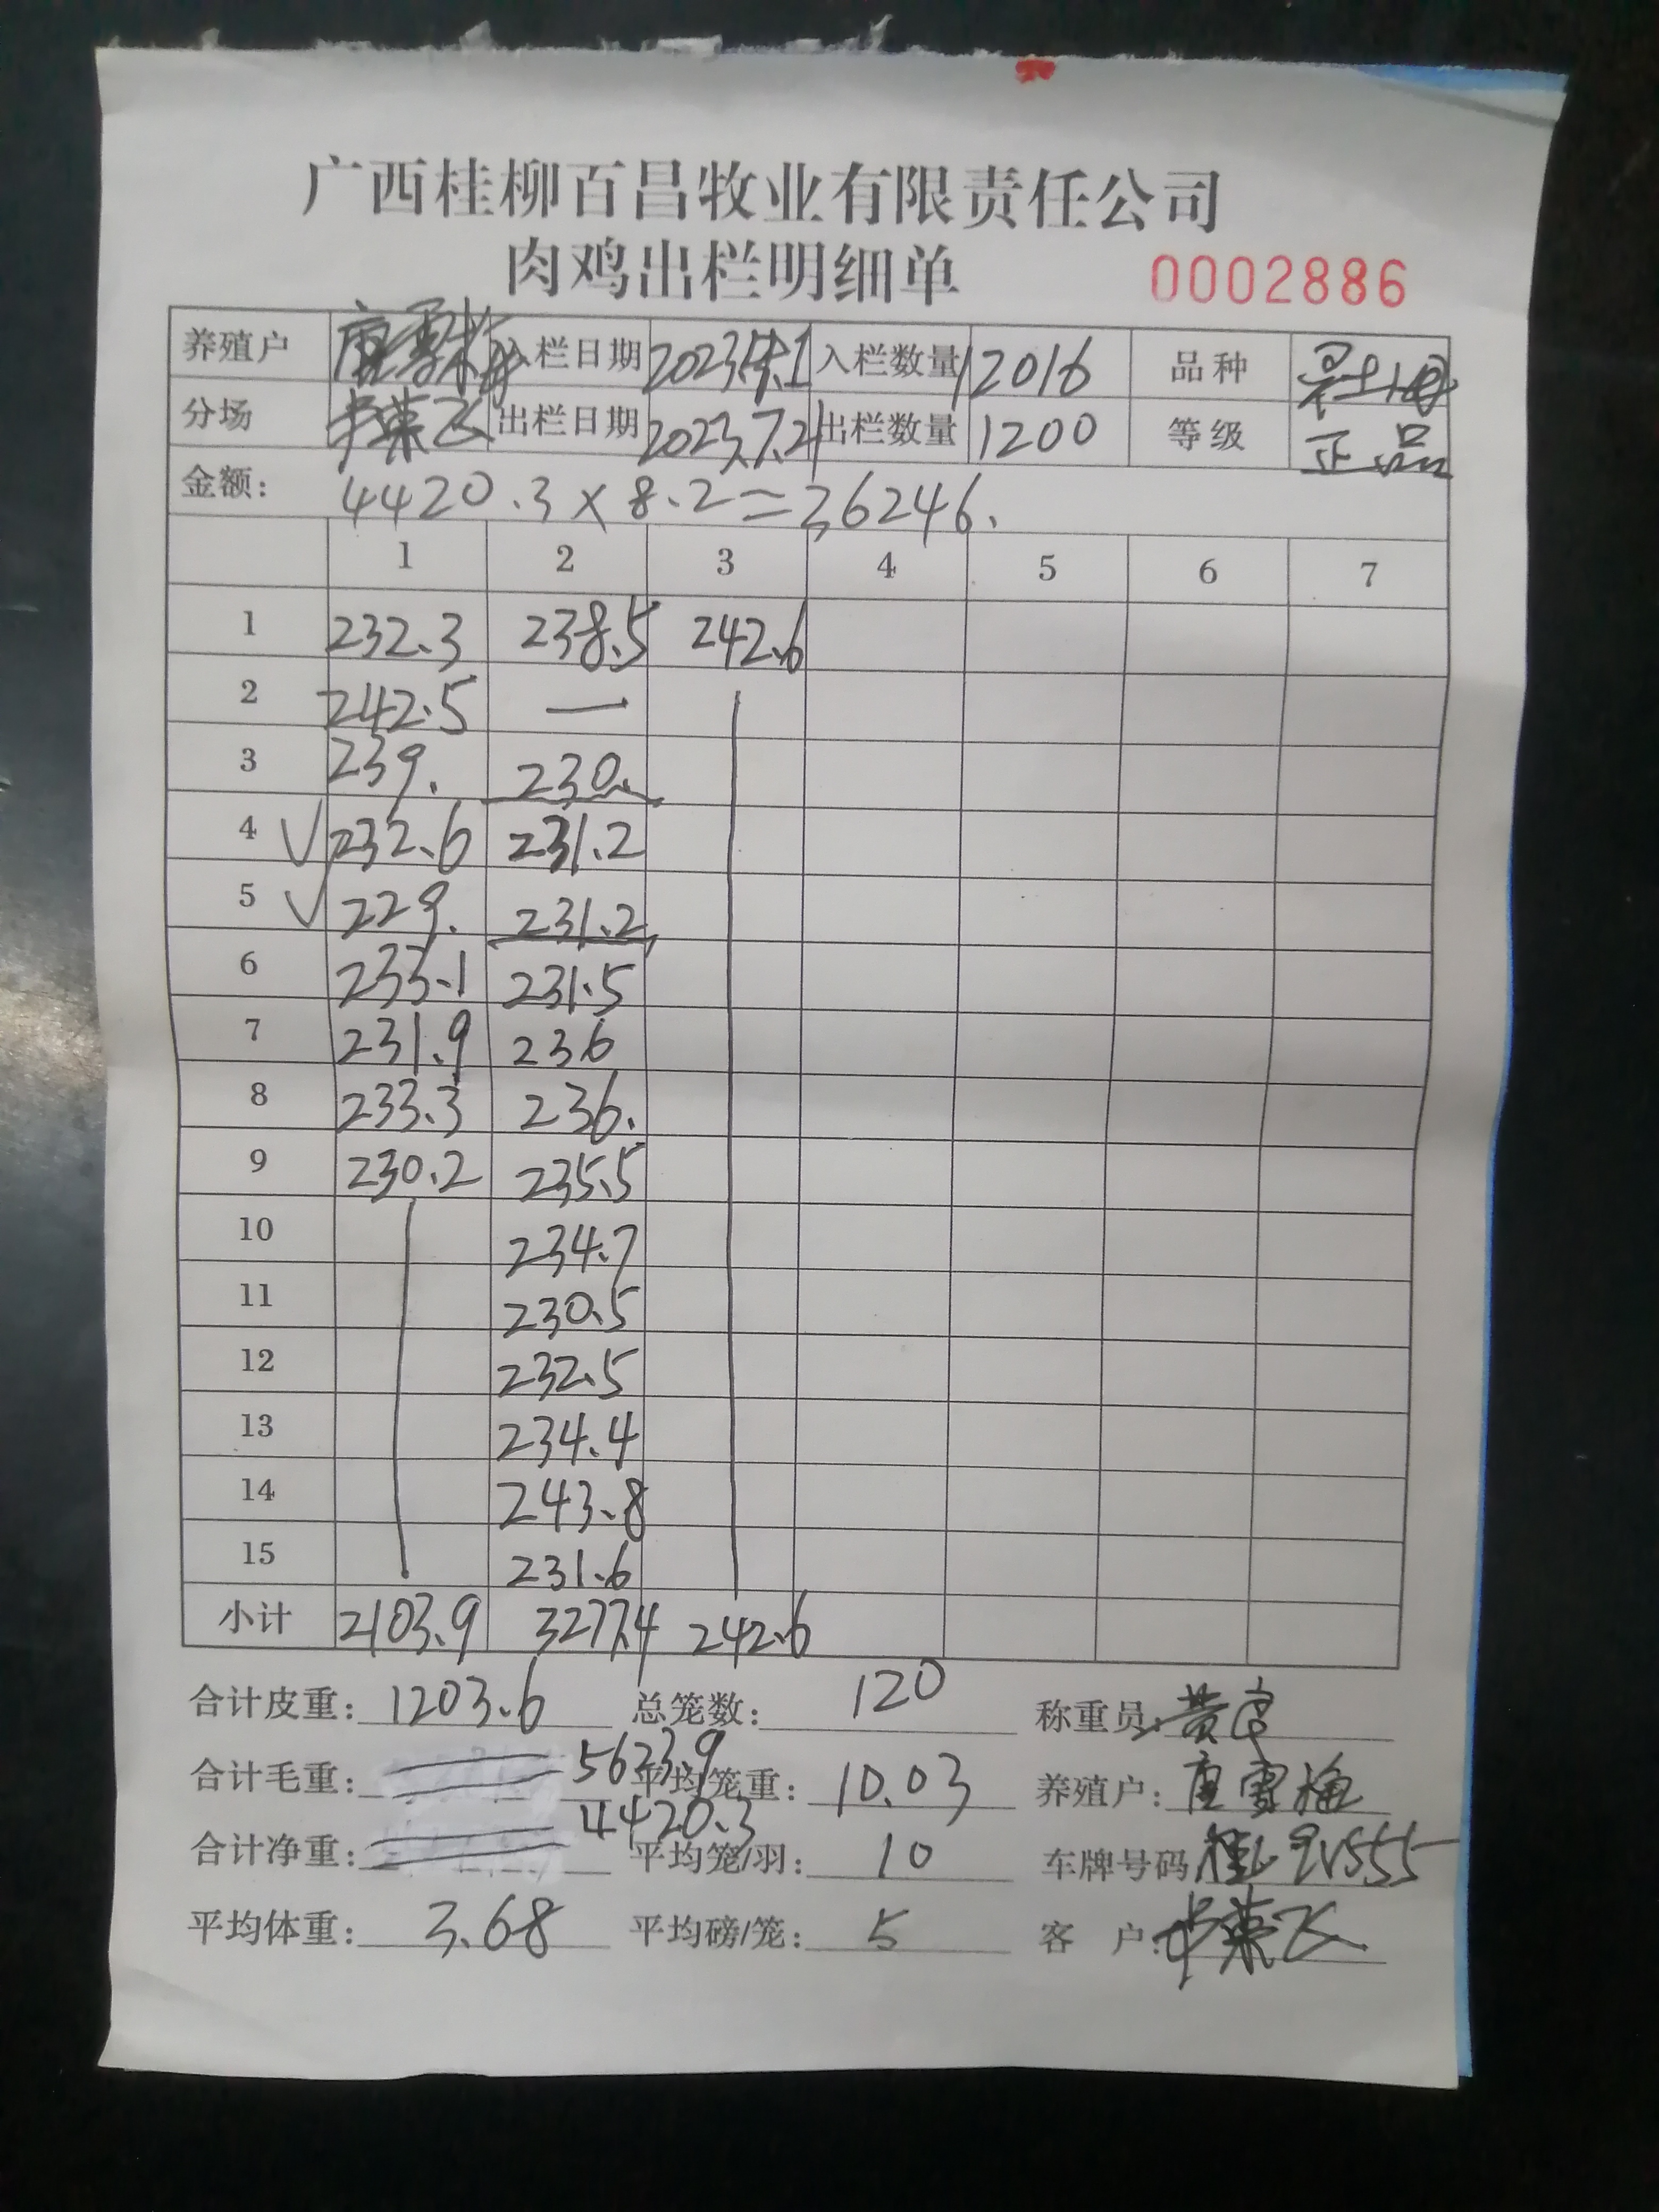 广西桂柳百昌牧业有限责任公司
肉鸡出栏明细单 0002886
养殖户 唐雪梅 入栏日期 入栏数量 12016 品种
分场 出栏日期 2023.7.21 出栏数量 1200 等级 正品
金额: 4420.3×8.2=36246.
1 2 3 4 5 6 7
1 232.3 238.5 242.6
2 242.5 —
3 239. 230.
4 √ 232.6 231.2
5 √ 229. 231.2
6 233.1 231.5
7 231.9 236
8 233.3 236.
9 230.2 235.5
10 234.7
11 230.5
12 232.5
13 234.4
14 243.8
15 231.6
小计 2103.9 3277.4 242.6
合计皮重: 1203.6 总笼数: 120 称重员:
合计毛重: 5623.9 平均笼重: 10.03 养殖户: 唐雪梅
合计净重: 4420.3 平均笼/羽: 10 车牌号码
平均体重: 3.68 平均磅/笼: 5 客 户: